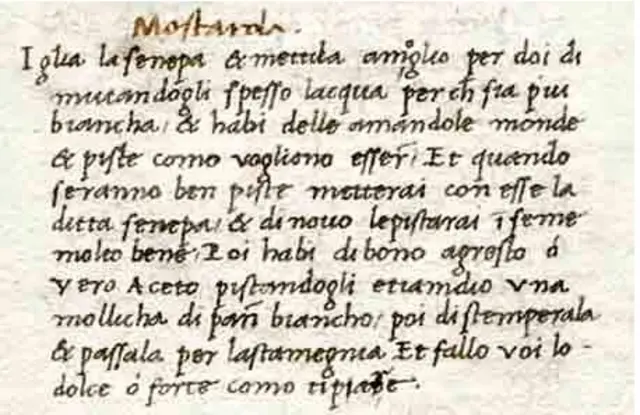 Mostarda.
Iglia la senepa & mettila a moglio per doi di
mutandogli spesso lacqua perch sia piu
biancha, & habi delle amandole monde
& piste como vogliono esser, Et quando
seranno ben piste metterai con esse la
ditta senepa, & di novo le pistarai ī seme
molto bene, Poi habi di bono agresto ó
vero Aceto pistandogli etiamdio una
mollicha di pañ biancho, poi distemperala
& passala per la stamegnia Et fallo voi lo-
dolce ó forte como ti piace.